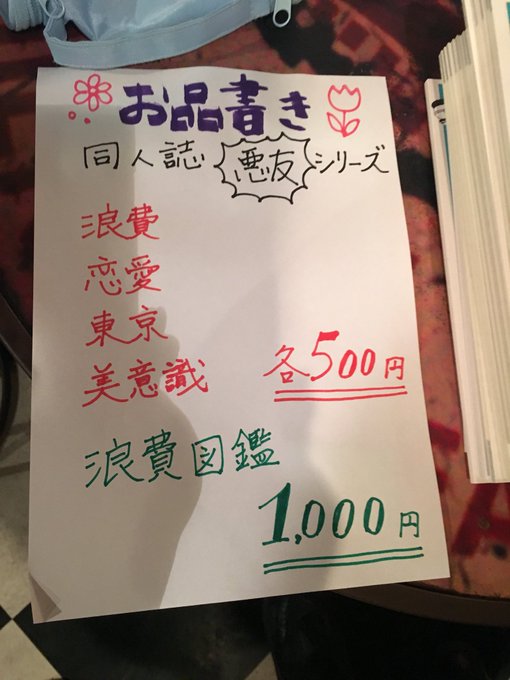 お品書き
同人誌 悪友 シリーズ
浪費
恋愛
東京
美意識 各500円
浪費図鑑
1,000円